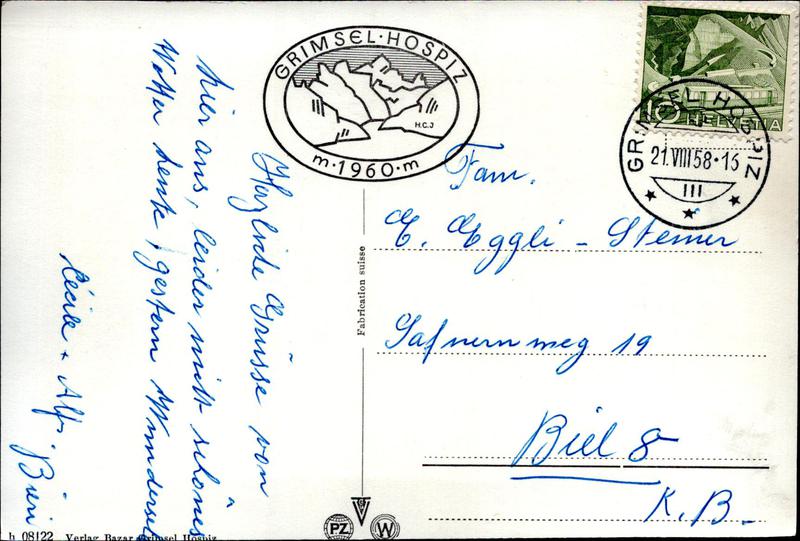 GRIMSEL·HOSPIZ
H.C.J
m·1960·m
HELVETIA
GRIMSEL HOSPIZ
21.VIII.58·16
III
Herzliche Grüsse von
hier aus, leider nicht schönes
Wetter heute, gestern
Cécile + Alf. Büri
Fam.
E. Eggli - Steiner
Safnernweg 19
Biel 8
K.B.
Fabrication suisse
PZ
W
h 08122 Verlag Bazar Grimsel Hospiz